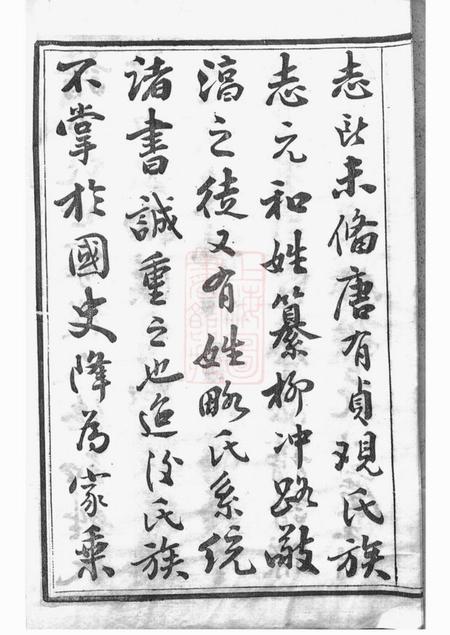 志所未備唐有貞觀氏族
志元和姓纂柳冲路敬
淳之徒又有姓略氏系统
諸書誠重之也迨後氏族
不掌於國史降為家乘